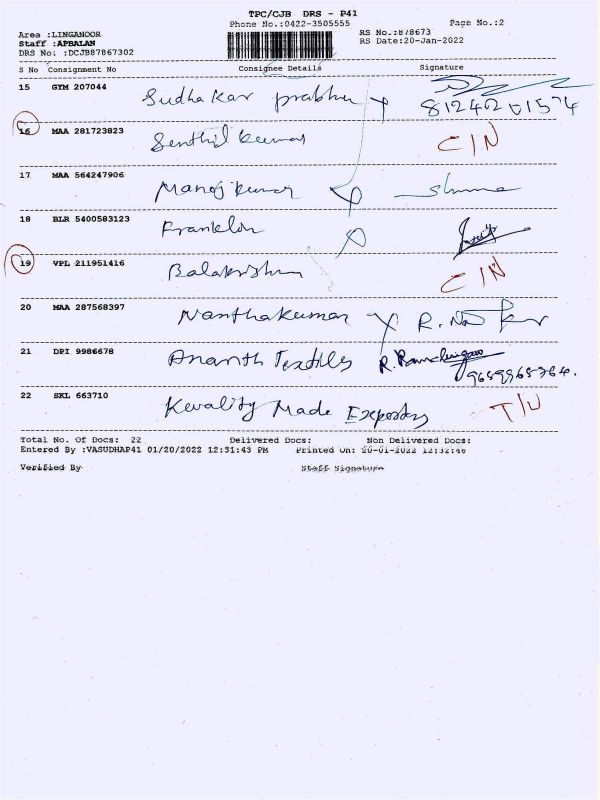 TPC/CJB DRS - P41
Phone No.:0422-3505555 Page No.:2
Area :LINGANOOR RS No.:878673
Staff :APBALAN RS Date:20-Jan-2022
DRS No: :DCJB87867302
S No Consignment No Consignee Details Signature
15 GYM 207044 Sudhakar prabhu 8124201574
16 MAA 281723823 Senthil kumar C/N
17 MAA 564247906 Manoj kumar
18 BLR 5400583123 Franklin
19 VPL 211951416 Balakrishn C/N
20 MAA 287568397 Nanthakumar
21 DPI 9986678 Ananth Textiles
22 SKL 663710 Kwality Made Exporters T/U
Total No. Of Docs: 22 Delivered Docs: Non Delivered Docs:
Entered By :VASUDHAP41 01/20/2022 12:31:43 PM Printed On: 20-01-2022 12:32:46
Verified By Staff Signature